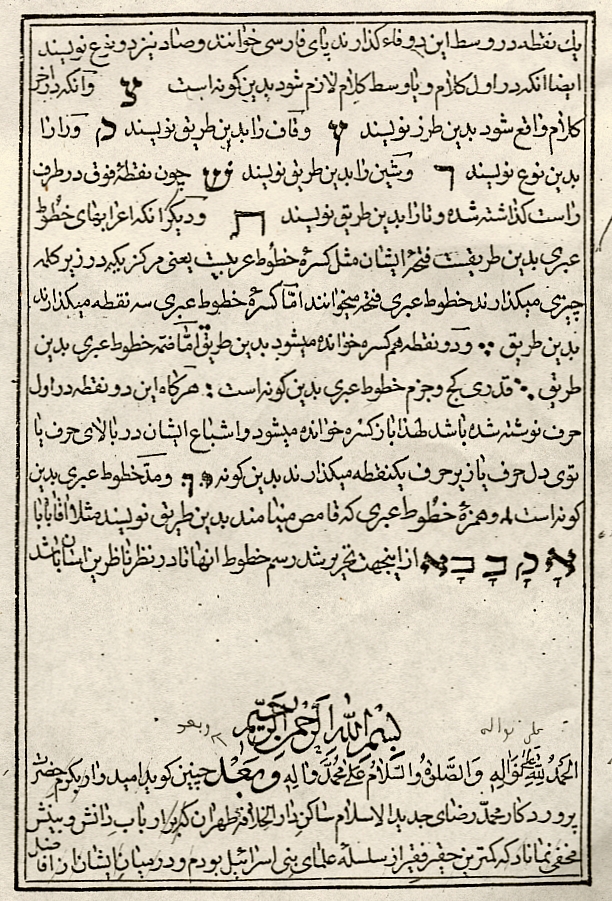 یك نقطه در وسط این دو فاء گذارند پای فارسی خوانند و صاد نیز دو نوع نویسند
ایضا انکه در اول کلام و یا وسط کلام لازم شود بدین کونه است צ و آنکه در اخر
کلام واقع شود بدین طرز نویسند ץ و قاف را بدین طریق نویسند ק و را را
بدین نوع نویسند ר و شین را بدین طریق نویسند ש چون نقطهٔ فوق در طرف
راست کذاشته شده و تا را بدین طریق نویسند ת و دیکر انکه اعرابهای خطوط
عبری بدین طریقست فتحهٔ ایشان مثل کسرهٔ خطوط عربیت یعنی مرکز یکه در زیر کلمه
چیزی میکذارند خطوط عبری فتحه میخوانند امّا کسرهٔ خطوط عبری سه نقطه میکذارند
بدین طریق و دو نقطه هم کسره خوانده میشود بدین طریق امّا ضمّه خطوط عبری بدین
طریق قدری کج و جزم خطوط عبری بدین کونه است : هر کاه این دو نقطه در اول
حرف نوشته شده باشد لهذا باز کسره خوانده میشود و اشباع ایشان در بالای حرف یا
توی دل حرف یا زیر حرف یکنقطه میکذارند بدین کونه و مدّ خطوط عبری بدین
کونه است و همزهٔ خطوط عبری که قامص مینامند بدین طریق نویسند مثلا
אָ בָ בָּ בָּא از اینجهت تحریر شد رسم خطوط انها تا در نظر ناظرین اسان باشد
بسم الله الرحمن الرحیم
علی نواله
و بعد
الحمد لله علی نواله والصّلوة والسّلام علی محمّد واله وبعد چنین کوید امیدوار بکرم حضرت
پروردکار محمّد رضای جدید الاسلام ساکن دار الخلافه طهران که بر ارباب دانش و بینش
مخفی نماناد که کمترین حقیر فقیر از سلسلهٔ علمای بنی اسرائیل بودم و در میان ایشان از افاضل